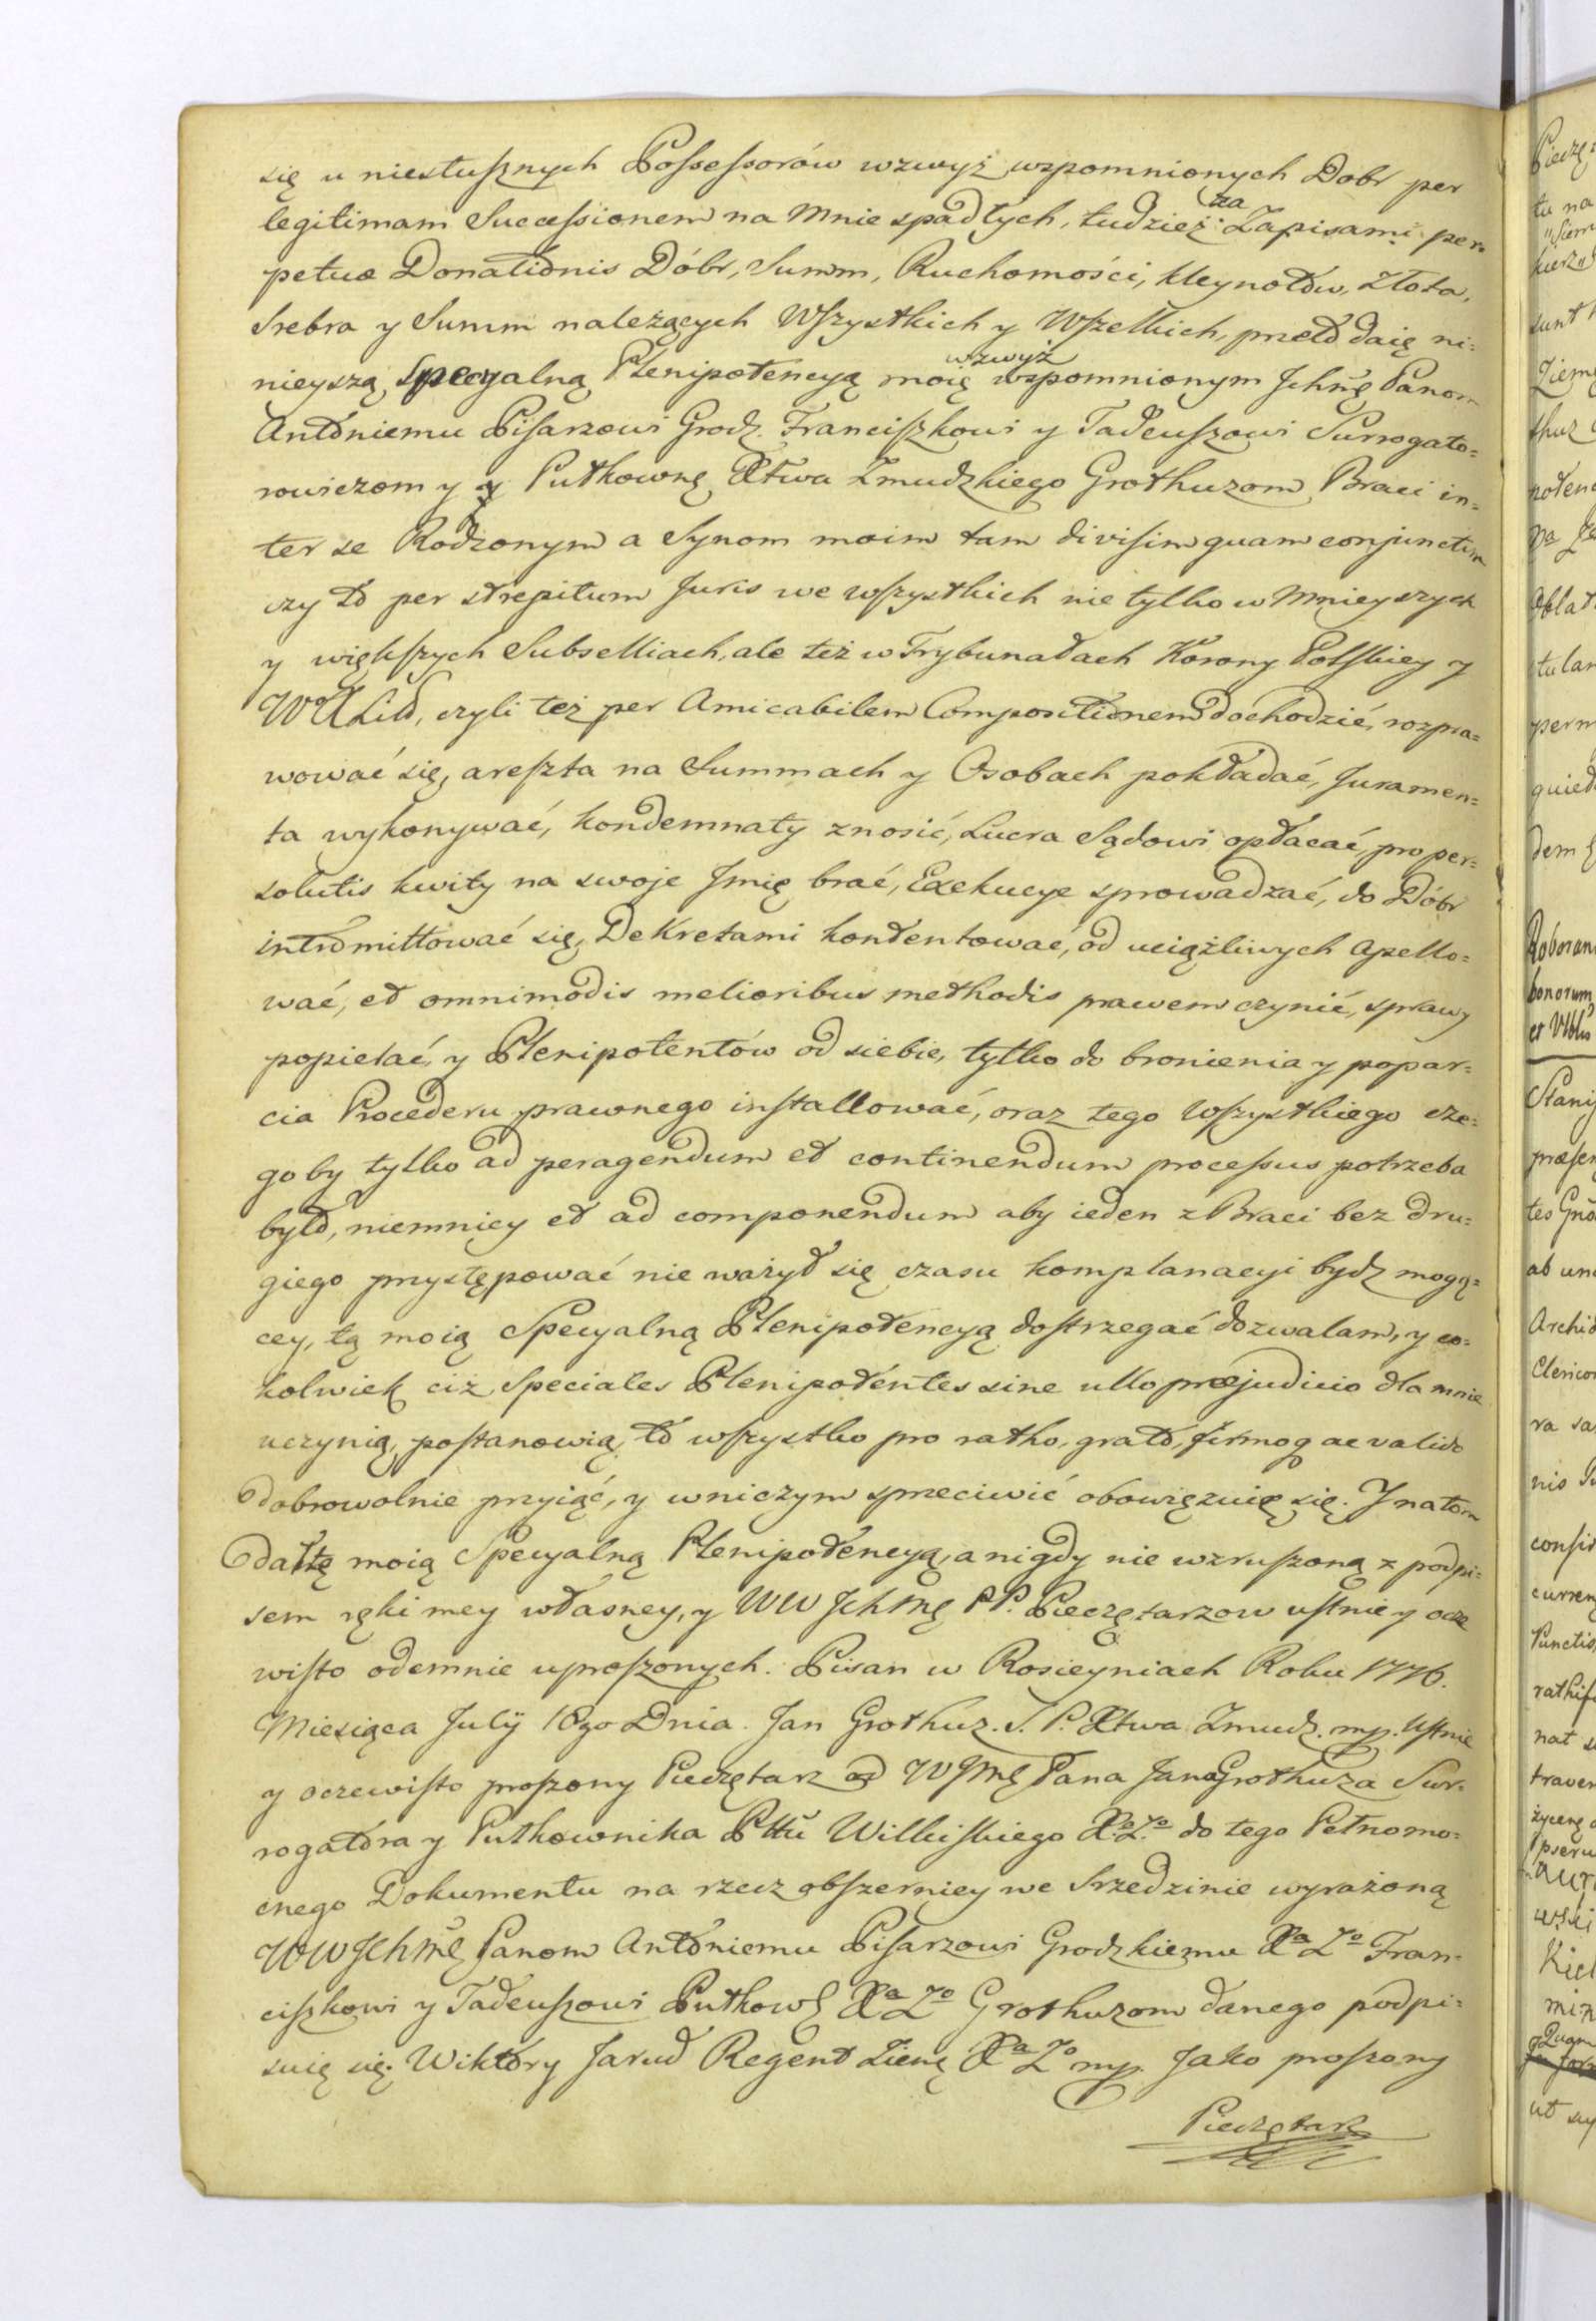 się u niesłusznych Possessorów wzwyż wzpomnionych Dobr per
legitimam Successionem na Mnie spadłych, tudzież za Zapisami per-
petuæ Donationis Dóbr, Summ, Ruchomości, kleynotów, złota,
Srebra y Summ należących Wszystkich y Wszelkich, przeto daię ni=
nieyszą Specyalną Plenipotencyą moię wzwyż wspomnionym Jchmę Panom
Antoniemu Pisarzowi Grodz. Franciszkowi y Tadeuszowi Surrogato=
rowiczom y Putkownę Xtwa Zmudzkiego Grothuzom Braci in=
ter se Rodzonym a Synom moim tam divisim quam conjunctim
czy to per strepitum Juris we wszystkich nie tylko w Mnieyszych
y większych Subselliach, ale też w Trybunałach Korony Polskiey y
WXLitt, czyli też per Amicabilem Compositionem dochodzić, rozpra=
wować się, areszta na Summach y Osobach pokładać, Juramen=
ta wykonywać, kondemnaty znosić, Lucra Sądowi opłacać, pro per=
solutis kwity na swoje Jmię brać, Exekucye sprowadzać, do Dóbr
intromittować się, DeKretami kontentować, od uciążliwych apello=
wać, et omnimodis melioribus methodis prawem czynić, sprawy
popierać, y Plenipotentów od siebie, tylko do bronienia y popar=
cia Procederu prawnego installować, oraz tego Wszystkiego cze=
go by tylko ad peragendum et continendum processus potrzeba
było, niemniey et ad componendum aby ieden z Braci bez dru=
giego przystępować nie ważył się czasu komplanacyi bydz mogą=
cey, tą moią Specyalną Plenipotencyą dostrzegać dozwalam, y co=
kolwiek ciż Speciales Plenipotentes sine ullo præjudicio dla mnie
uczynią, postanowią, to wszystko pro ratho, grato, firmoq ac valido
dobrowolnie przyiąć, y w niczym sprzeciwić obowięzuię się. Y na tom
dał tę moią Specyalną Plenipotencyą, a nigdy nie wzruszoną z podpi=
sem ręki mey własney, y WW Jchmę PP. Pieczętarzow ustnie y ocze
wisto odemnie uproszonych. Pisan w Rosieyniach Roku 1776.
Miesiąca Julÿ 18go Dnia. Jan Grothuz. S. P. Xtwa Zmudz. mp. Ustnie
y oczewisto proszony Pieczętarz od WJmę Pana Jana Grothuza Sur-
rogatora y Putkownika Pttu Wilkiskiego Xa Zo do tego Pełnomo=
cnego Dokumentu na rzecz obszerniey we Srzedzinie wyrażoną
WWJchmę Panom Antoniemu Pisarzowi Grodzkiemu Xa Zo Fran-
ciszkowi y Tadeuszowi Putkow Xa Zo Grothuzom danego podpi=
suię się. Wiktory Jarud Regent Ziemę Xa Zo mp. Jako proszony
Pieczętarz